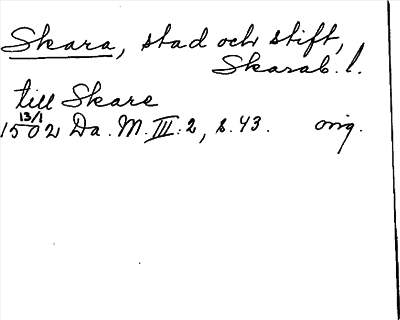 Skara, stad och stift,
Skarab. l.
till Skare
13/1
1502 Da. M. III: 2, s. 43. orig.